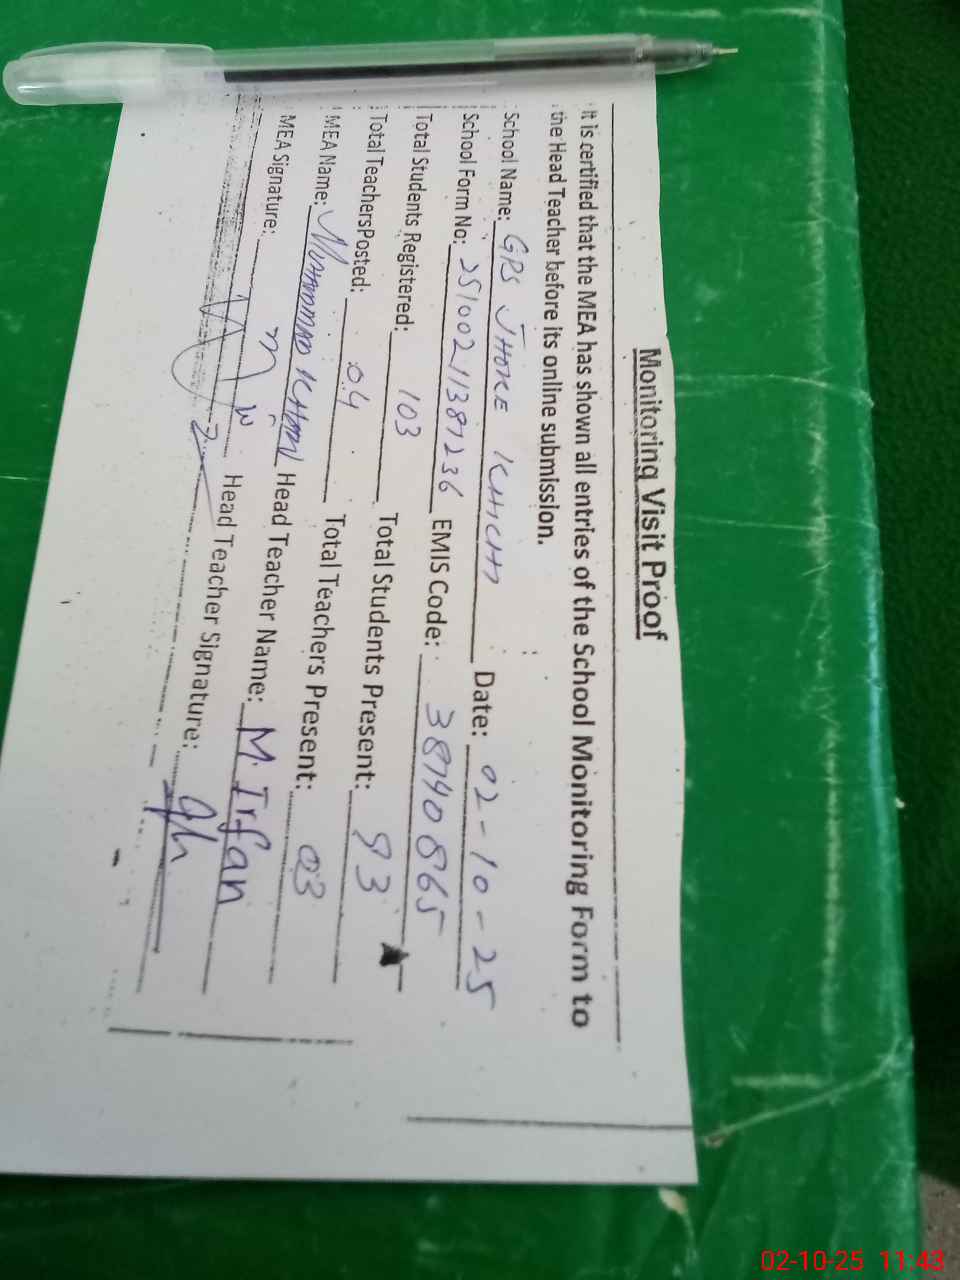 Monitoring Visit Proof
It is certified that the MEA has shown all entries of the School Monitoring Form to
the Head Teacher before its online submission.
School Name: GPS JHOKE KHICHI Date: 02-10-25
School Form No: 25100211387236 EMIS Code: 38740865
Total Students Registered: 103 Total Students Present: 93
Total Teachers Posted: 04 Total Teachers Present: 03
MEA Name: MUHAMMAD KHAN Head Teacher Name: M. Irfan
MEA Signature: Head Teacher Signature:
02-10-25 11:43